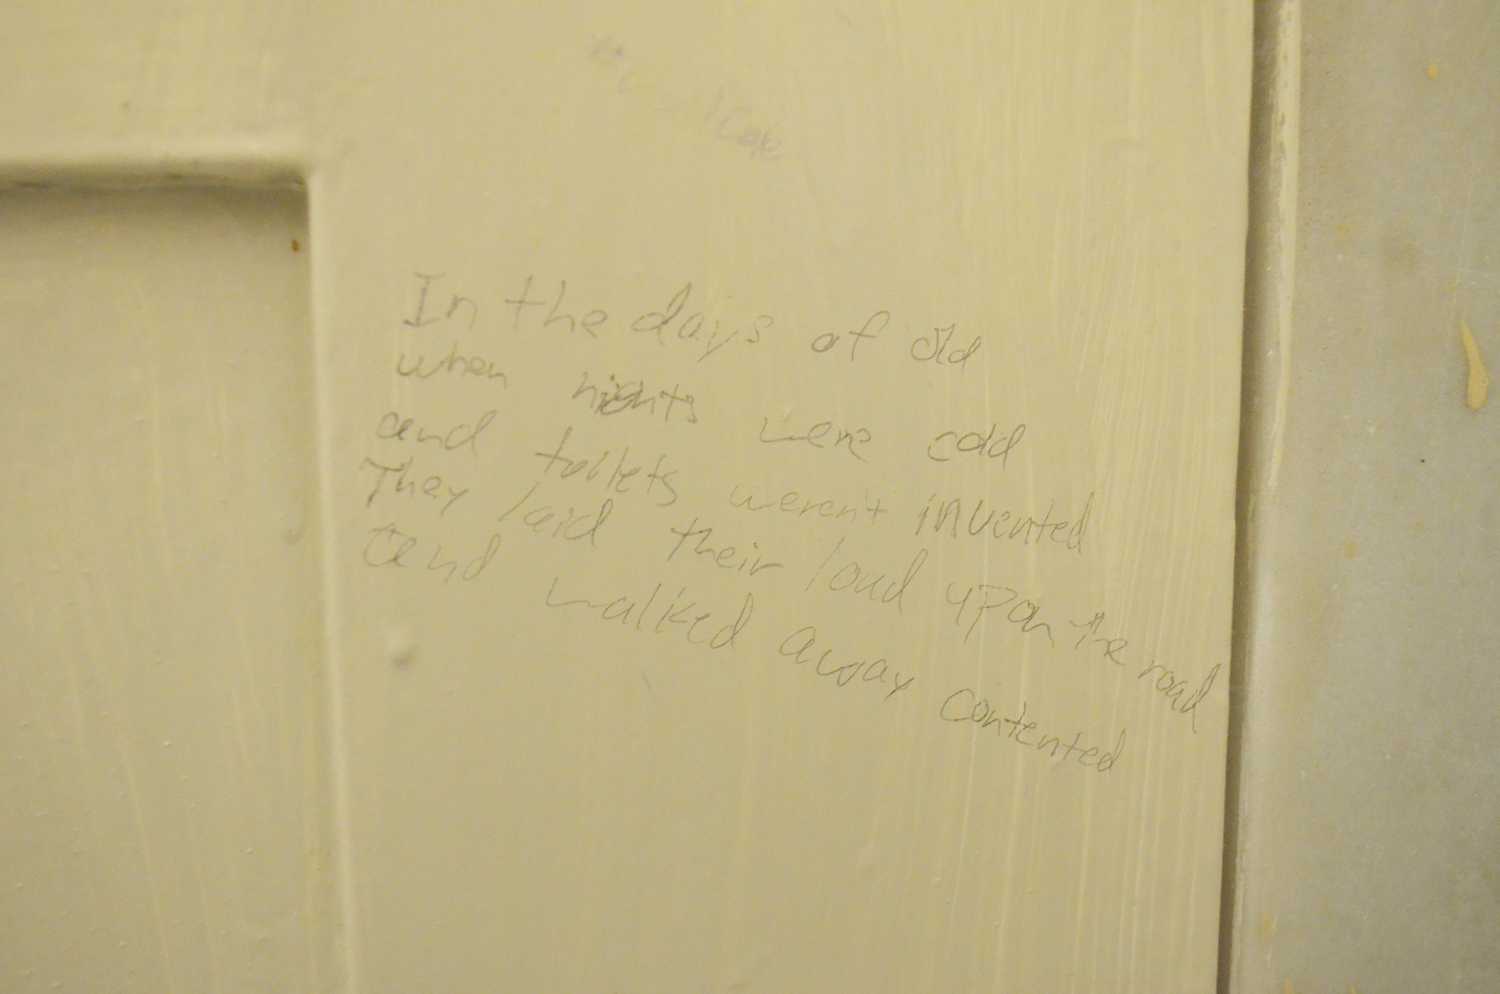 In the days of old
when nights were cold
and toilets weren't invented
They laid their load upon the road
and walked away contented